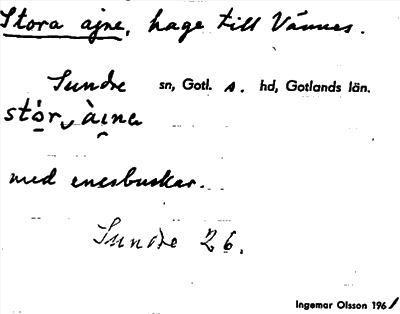 Stora ajne, hage till Vännes.
Sundre sn, Gotl. s. hd, Gotlands län.
med enesbuskar.
Sundre 26.
Ingemar Olsson 1961